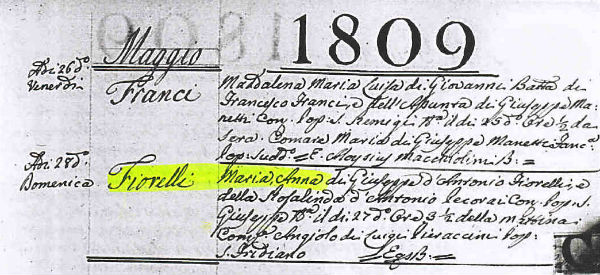 Maggio 1809
Adi 26 d.º
Venerdi
Franci
Maddalena Maria Luisa di Giovanni Batta di
Francesco Franci, e dell'Assunta di Giuseppe Ma-
netti Con. Pop. S. Remigi N.ª il di 25 d.º Ore ½ da
Sera. Comare Maria di Giuseppe Manetti Franc.
Pop. Sud.º = E. Aloysius B. =
Adi 28 d.º
Domenica
Fiorelli
Maria Anna di Giuseppe d'Antonio Fiorelli, e
della Rosalinda d'Antonio Pecorai Con. Pop. S.
Giuseppe N.ª il di 27 d.º Ore 3 ½ della mattina:
Com.e Angiolo di Luigi Pieraccini Pop.
S. Fridiano = EgsB. =